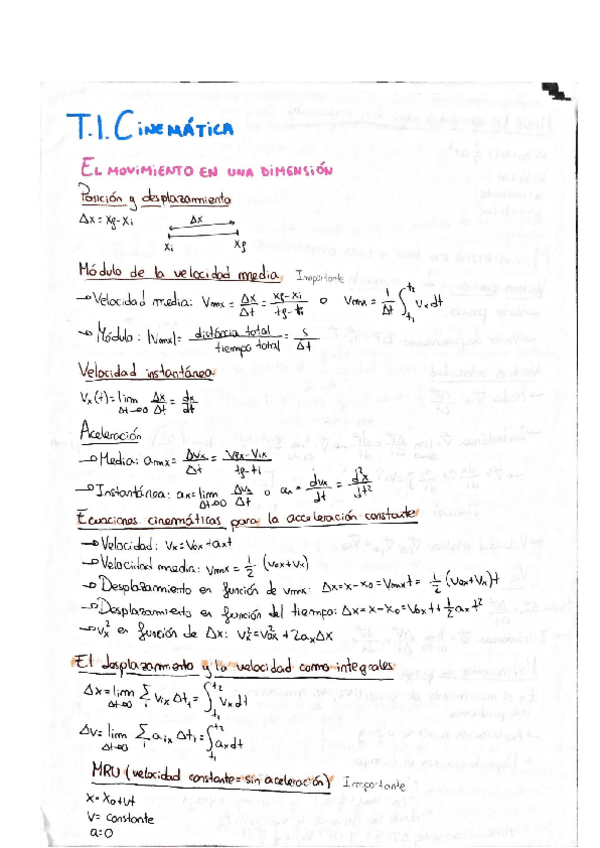 T.1. CINEMÁTICA
EL MOVIMIENTO EN UNA DIMENSIÓN
Posición y desplazamiento
Δx = xf - xi
Δx
xi xf
Módulo de la velocidad media Importante
→ Velocidad media: Vmx = Δx/Δt = (xf - xi)/(tf - ti) o Vmx = 1/Δt ∫_{t1}^{t2} vx dt
→ Módulo: |Vmx| = distáncia total/tiempo total = s/Δt
Velocidad instantánea
Vx(t) = lim_{Δt→0} Δx/Δt = dx/dt
Aceleración
→ Media: amx = Δvx/Δt = (Vfx - Vix)/(tf - ti)
→ Instantánea: ax = lim_{Δt→0} Δvx/Δt o ax = dvx/dt = d²x/dt²
Ecuaciones cinemáticas para la aceleración constante
→ Velocidad: Vx = Vox + axt
→ Velocidad media: Vmx = 1/2 (vox + vx)
→ Desplazamiento en función de vmx: Δx = x - x0 = Vmx t = 1/2 (Vox + Vx)t
→ Desplazamiento en función del tiempo: Δx = x - x0 = Vox t + 1/2 ax t²
→ Vx² en función de Δx: Vx² = Vox² + 2axΔx
El desplazamiento y la velocidad como integrales
Δx = lim_{Δt→0} Σ_i Vix Δt1 = ∫_{t1}^{t2} Vx dt
Δv = lim_{Δt→0} Σ_i aix Δt1 = ∫_{t1}^{t2} ax dt
MRU (velocidad constante = sin aceleración) Importante
x = x0 + vt
V = constante
a = 0